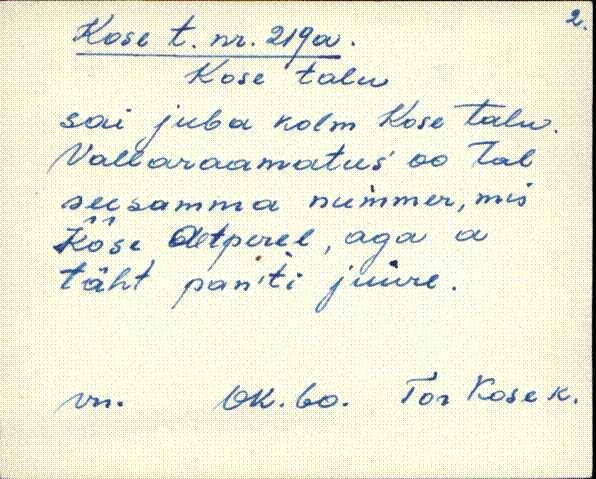 2.
Kose t. nr. 219a.
Kose talu
sai juba kolm Kose talu.
Vallaraamatus oo tal
seesamma nummer, mis
Kõse Aetperel, aga a
täht pan'ti juure.
vn. OK. 60. Tor Kose k.